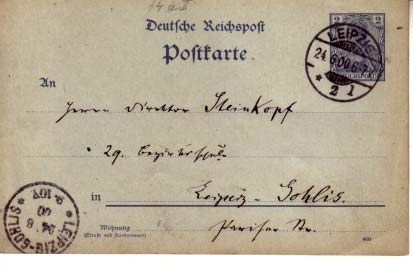 Deutsche Reichspost
Postkarte
2 2
LEIPZIG
24.6.00.6-7
* 2 l
An
Herrn Direktor Steinkopf
29. Bezirksschule
in Leipzig-Gohlis.
Pariser Str.
Wohnung
(Straße und Hausnummer)
* LEIPZIG-GOHLIS *
24 6
00